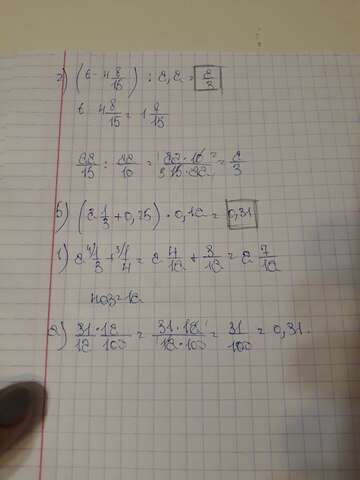 г) (6 - 4 8/15) : 2,2 = 2/3
6 - 4 8/15 = 1 7/15
22/15 : 22/10 = 22 · 10 / 15 · 22 = 2/3
б) (2 1/3 + 0,25) · 0,12 = 0,31
1) 2 1/3 + 1/4 = 2 4/12 + 3/12 = 2 7/12
ноз = 12
2) 31/12 · 12/100 = 31 · 12 / 12 · 100 = 31/100 = 0,31.